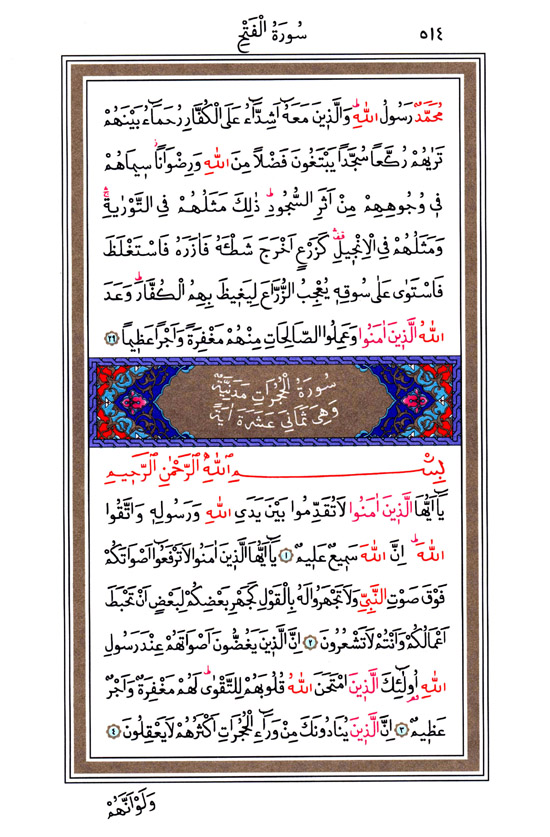 سُورَةُ الْفَتْحِ ٥١٤
مُحَمَّدٌ رَسُولُ اللّٰهِۜ وَالَّذ۪ينَ مَعَهُٓ اَشِدَّٓاءُ عَلَى الْكُفَّارِ رُحَمَٓاءُ بَيْنَهُمْ
تَرٰيهُمْ رُكَّعاً سُجَّداً يَبْتَغُونَ فَضْلاً مِنَ اللّٰهِ وَرِضْوَاناًۘ س۪يمَاهُمْ
ف۪ي وُجُوهِهِمْ مِنْ اَثَرِ السُّجُودِۜ ذٰلِكَ مَثَلُهُمْ فِي التَّوْرٰيةِۚۛ
وَمَثَلُهُمْ فِي الْاِنْج۪يلِ۠ۛ كَزَرْعٍ اَخْرَجَ شَطْـَٔهُ فَاٰزَرَهُ فَاسْتَغْلَظَ
فَاسْتَوٰى عَلٰى سُوقِه۪ يُعْجِبُ الزُّرَّاعَ لِيَغ۪يظَ بِهِمُ الْكُفَّارَۜ وَعَدَ
اللّٰهُ الَّذ۪ينَ اٰمَنُوا وَعَمِلُوا الصَّالِحَاتِ مِنْهُمْ مَغْفِرَةً وَاَجْراً عَظ۪يماً ﴿٢٩﴾
سُورَةُ الْحُجُرَاتِ مَدَنِيَّةٌ
وَهِيَ ثَمَانِيَ عَشْرَةَ اٰيَةً
بِسْمِ اللّٰهِ الرَّحْمٰنِ الرَّح۪يمِ
يَٓا اَيُّهَا الَّذ۪ينَ اٰمَنُوا لَا تُقَدِّمُوا بَيْنَ يَدَيِ اللّٰهِ وَرَسُولِه۪ وَاتَّقُوا
اللّٰهَۜ اِنَّ اللّٰهَ سَم۪يعٌ عَل۪يمٌ ﴿١﴾ يَٓا اَيُّهَا الَّذ۪ينَ اٰمَنُوا لَا تَرْفَعُٓوا اَصْوَاتَكُمْ
فَوْقَ صَوْتِ النَّبِيِّ وَلَا تَجْهَرُوا لَهُ بِالْقَوْلِ كَجَهْرِ بَعْضِكُمْ لِبَعْضٍ اَنْ تَحْبَطَ
اَعْمَالُكُمْ وَاَنْتُمْ لَا تَشْعُرُونَ ﴿٢﴾ اِنَّ الَّذ۪ينَ يَغُضُّونَ اَصْوَاتَهُمْ عِنْدَ رَسُولِ
اللّٰهِ اُو۬لٰٓئِكَ الَّذ۪ينَ امْتَحَنَ اللّٰهُ قُلُوبَهُمْ لِلتَّقْوٰىۜ لَهُمْ مَغْفِرَةٌ وَاَجْرٌ
عَظ۪يمٌ ﴿٣﴾ اِنَّ الَّذ۪ينَ يُنَادُونَكَ مِنْ وَرَٓاءِ الْحُجُرَاتِ اَكْثَرُهُمْ لَا يَعْقِلُونَ ﴿٤﴾
وَلَوْ اَنَّهُمْ